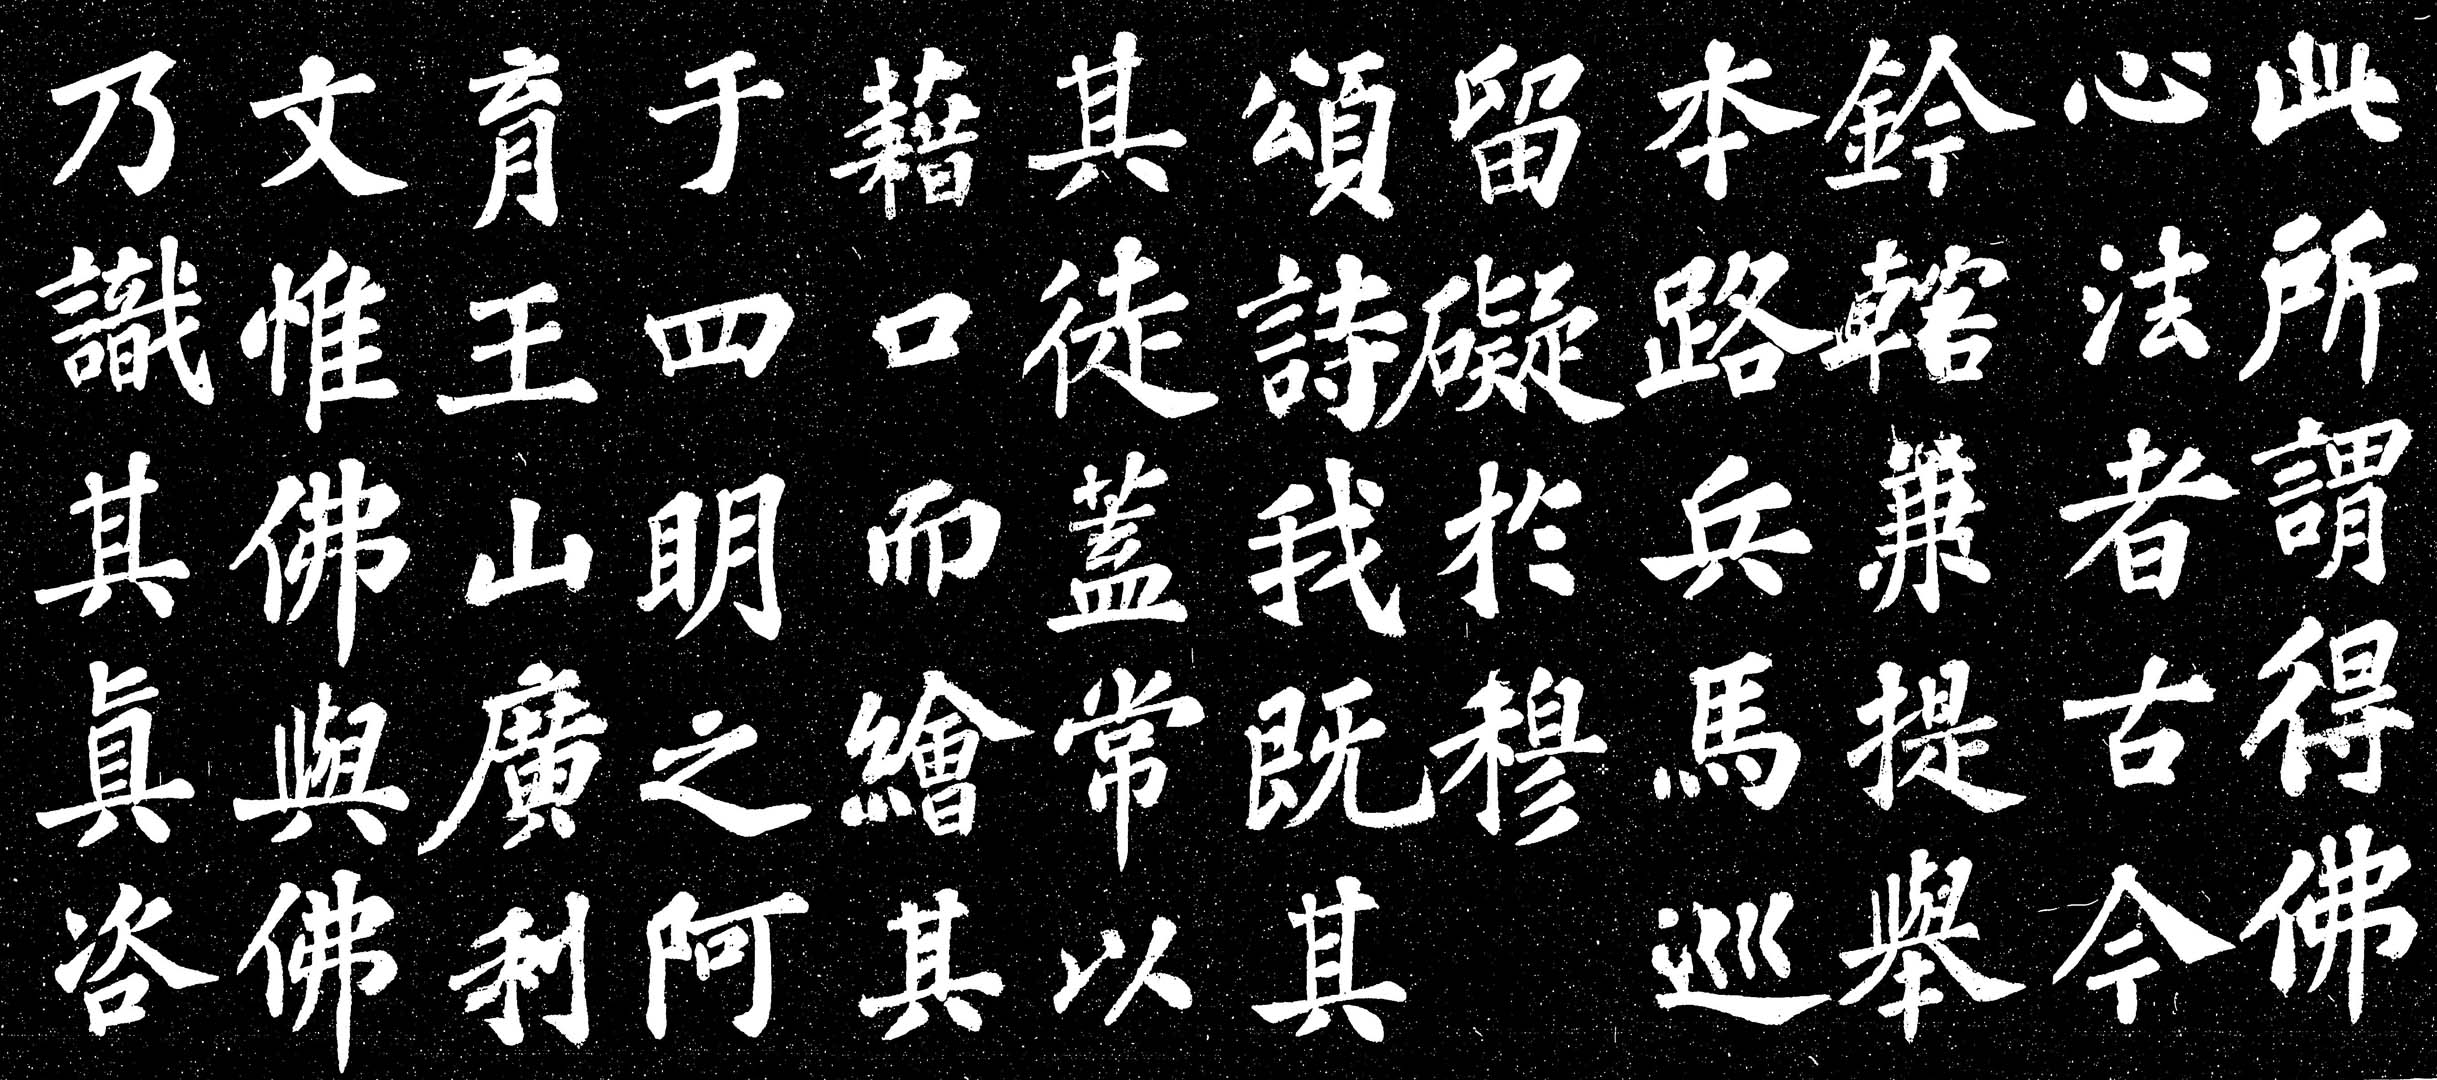 此所謂得佛
心法者古今
鈐轄兼提舉
本路兵馬巡
留礙於穆
頌詩我既其
其徒蓋常以
藉口而繪其
于四明之阿
育王山廣利
文惟佛與佛
乃識其真咨